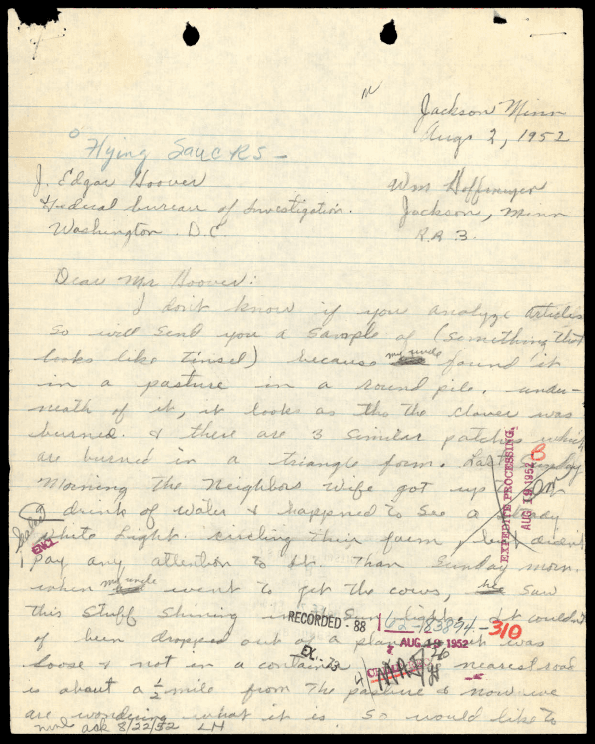 Jackson Minn
Augs 2, 1952
Flying Saucers -
J. Edgar Hoover
Wm Hoffmeyer
Federal bureau of Investigation.
Jackson, Minn
Washington. D.C.
R.R. 3.
Dear Mr Hoover:
I don't know if you analyze articles
so will send you a sample of (something that
looks like tinsel) because my uncle found it
in a pasture in a round pile. under-
neath of it, it looks as tho the clover was
burned. & there are 3 similar patches which
are burned in a triangle form. Last Sunday
Morning the Neighbors Wife got up for
drink of Water & happened to see a
white Light. circling their farm, but didn't
pay any attention to it. Than Sunday morn.
when my uncle went to get the cows, he saw
this stuff shining in the Sun light. It couldn't
of been dropped out of a plane as it was
loose & not in a container nearest road
is about a ½ mile from the pasture & now we
are wondering what it is. So would like to
ENCL
EXPEDITE PROCESSING
AUG 19 1952
B
RECORDED - 88
62-83894-310
AUG 19 1952
EX. - 23
ask 8/22/52 LH